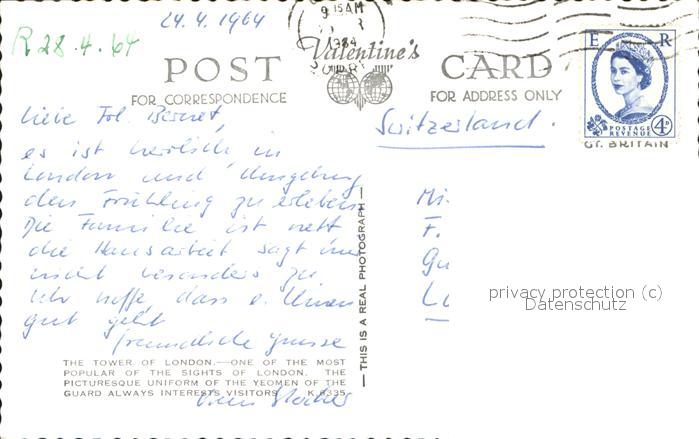 24.4.1964
R 28.4.64
9 15 AM
1964
Valentine's
POST CARD
FOR CORRESPONDENCE
FOR ADDRESS ONLY
E R
POSTAGE
REVENUE
4D
GT. BRITAIN
Switzerland.
Liebe Frl. Bernet,
es ist herrlich, in
London und Umgebung
den Frühling zu erleben.
Die Familie ist nett
die Hausarbeit sagt mir
nicht besonders zu
Ich hoffe, dass es Ihnen
gut geht
freundliche Grüsse
Mi.
F.
Gu
privacy protection (c)
Datenschutz
THIS IS A REAL PHOTOGRAPH
THE TOWER OF LONDON.—ONE OF THE MOST
POPULAR OF THE SIGHTS OF LONDON. THE
PICTURESQUE UNIFORM OF THE YEOMEN OF THE
GUARD ALWAYS INTERESTS VISITORS. K 6335